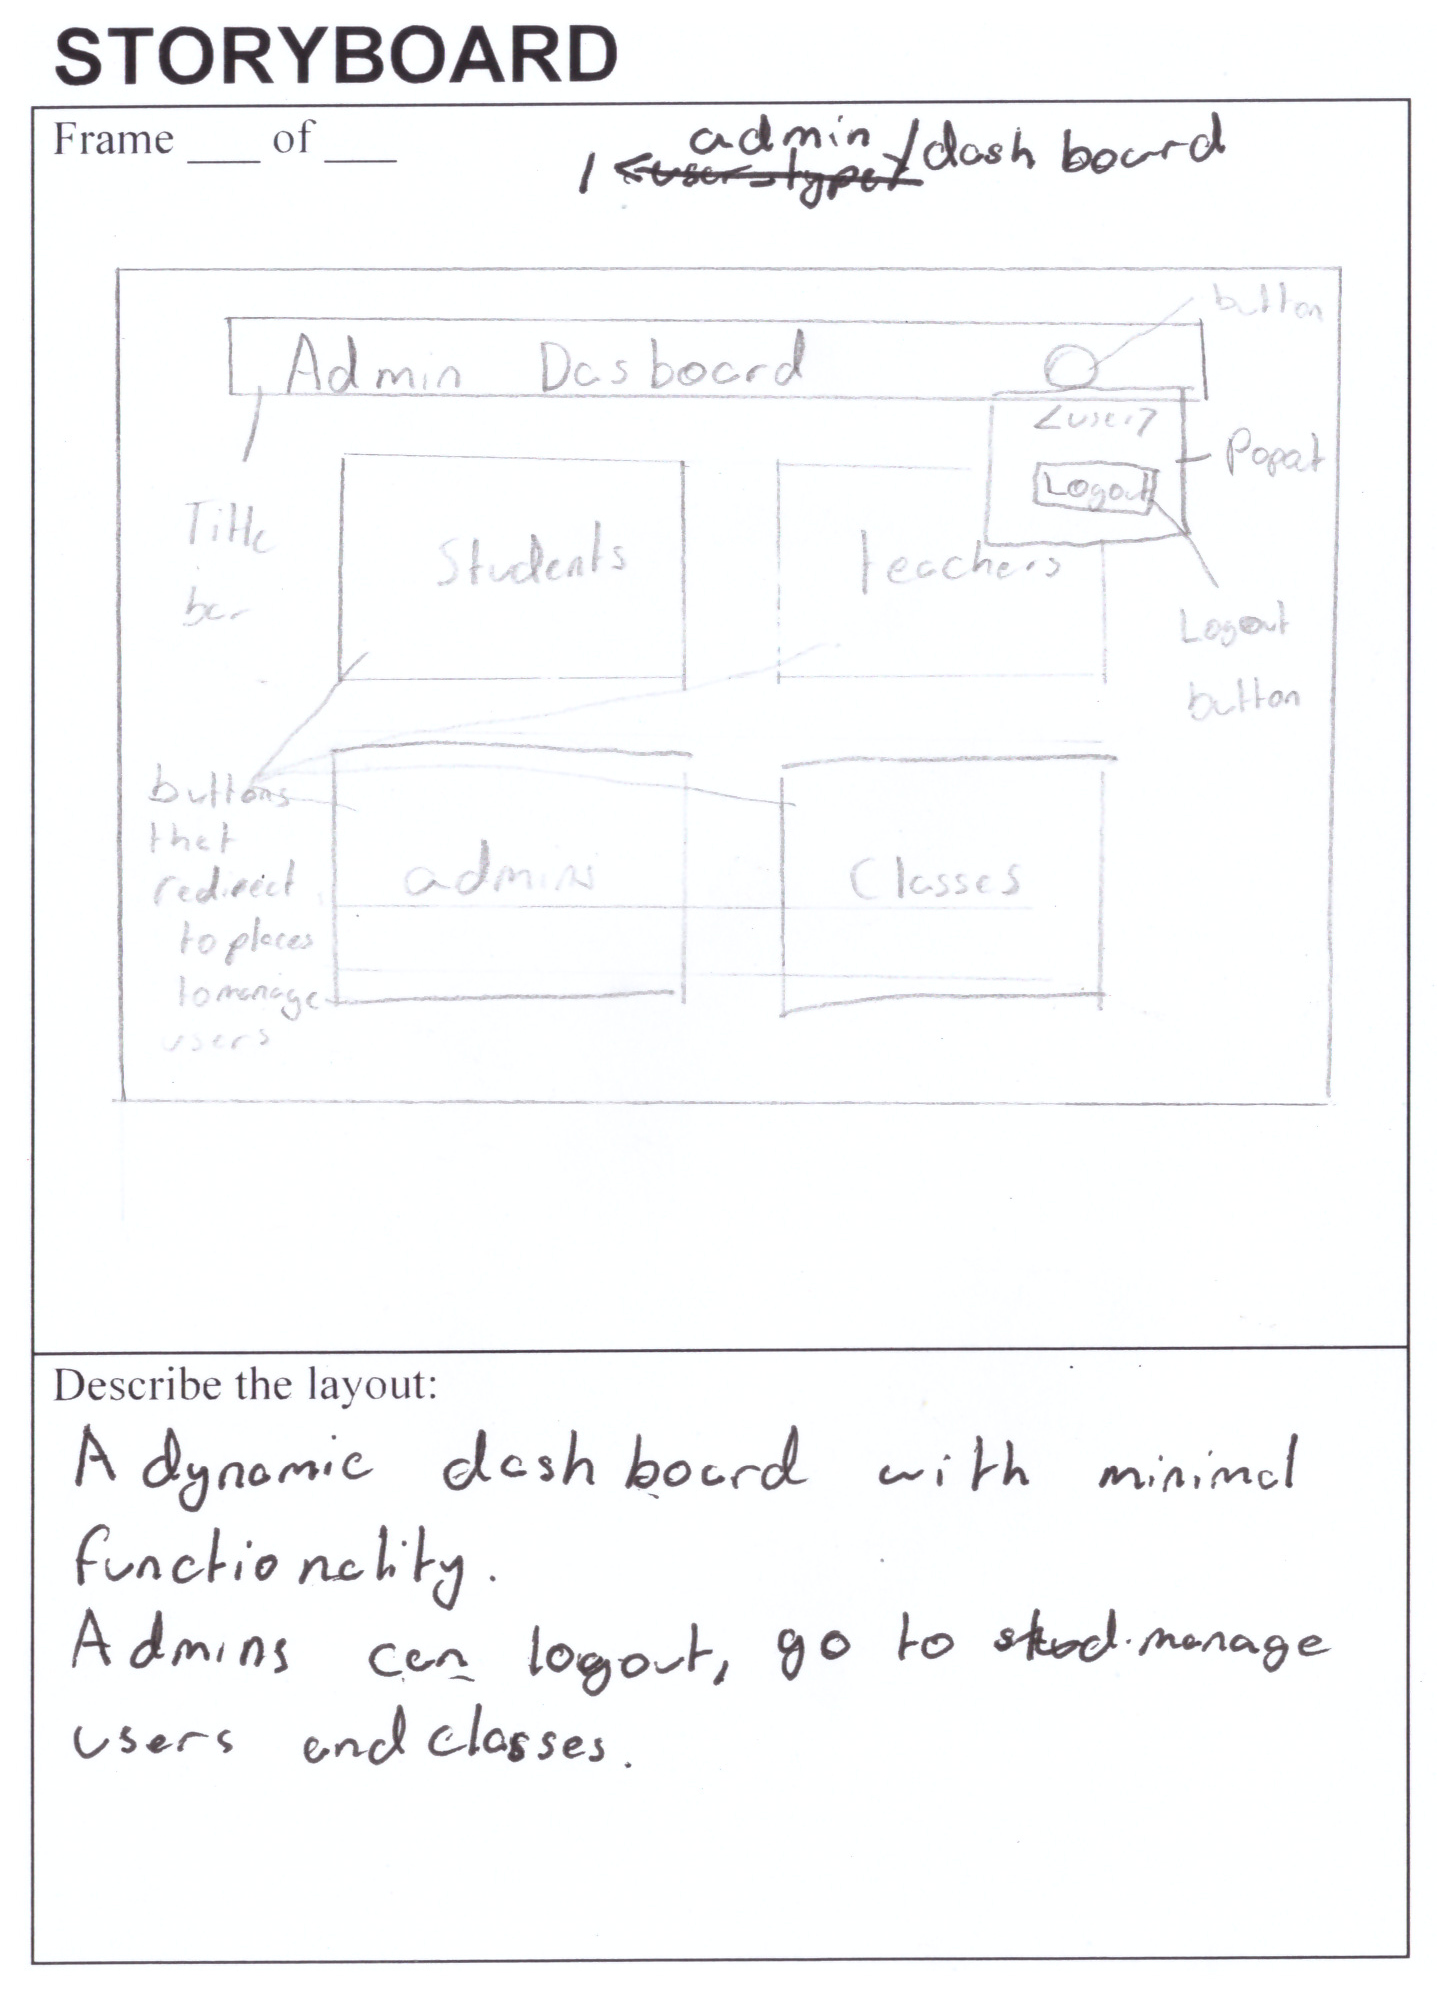 STORYBOARD
Frame ___ of ___
admin
/ <user-type>/dashboard
button
Admin Dasboard
<user>
Popat
Logout
Title
bar
Students
teachers
Logout
button
buttons
that
redirect
to places
to manage
users
admins
Classes
Describe the layout:
A dynamic dashboard with minimal
functionality.
Admins can logout, go to stud. manage
users and classes.